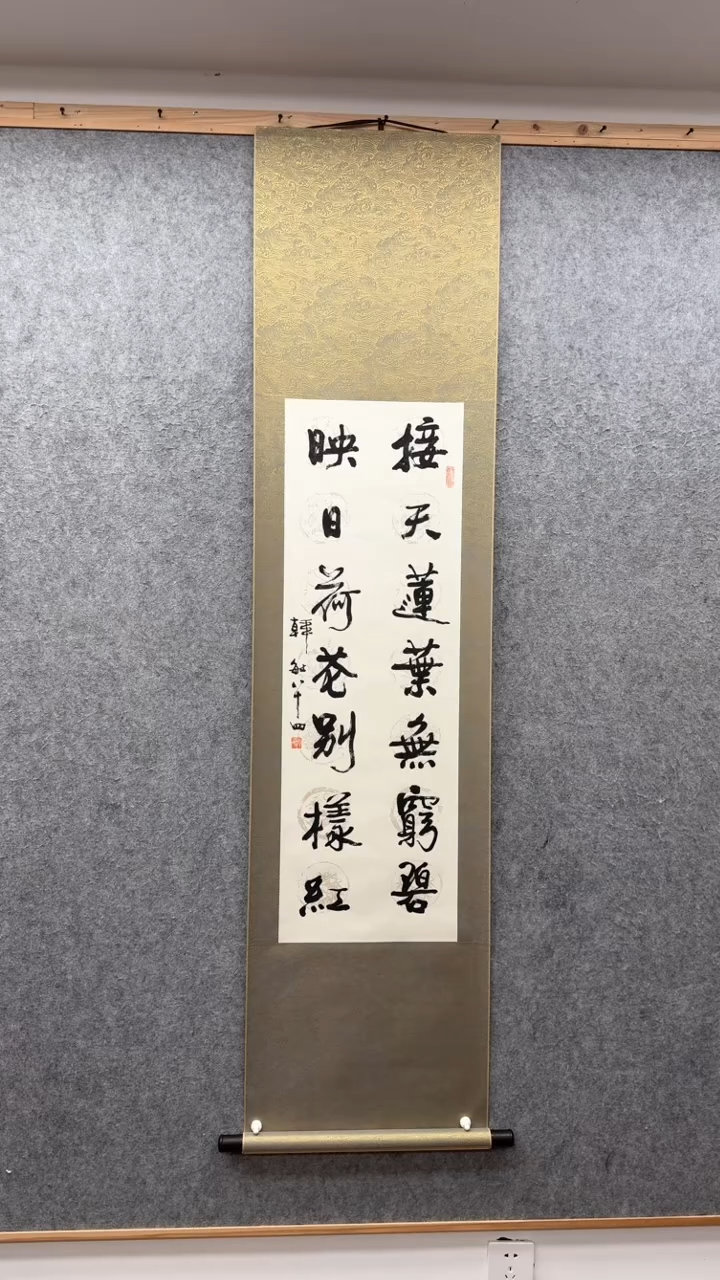 接天蓮葉無窮碧
映日荷花別樣紅
韓敏八十四